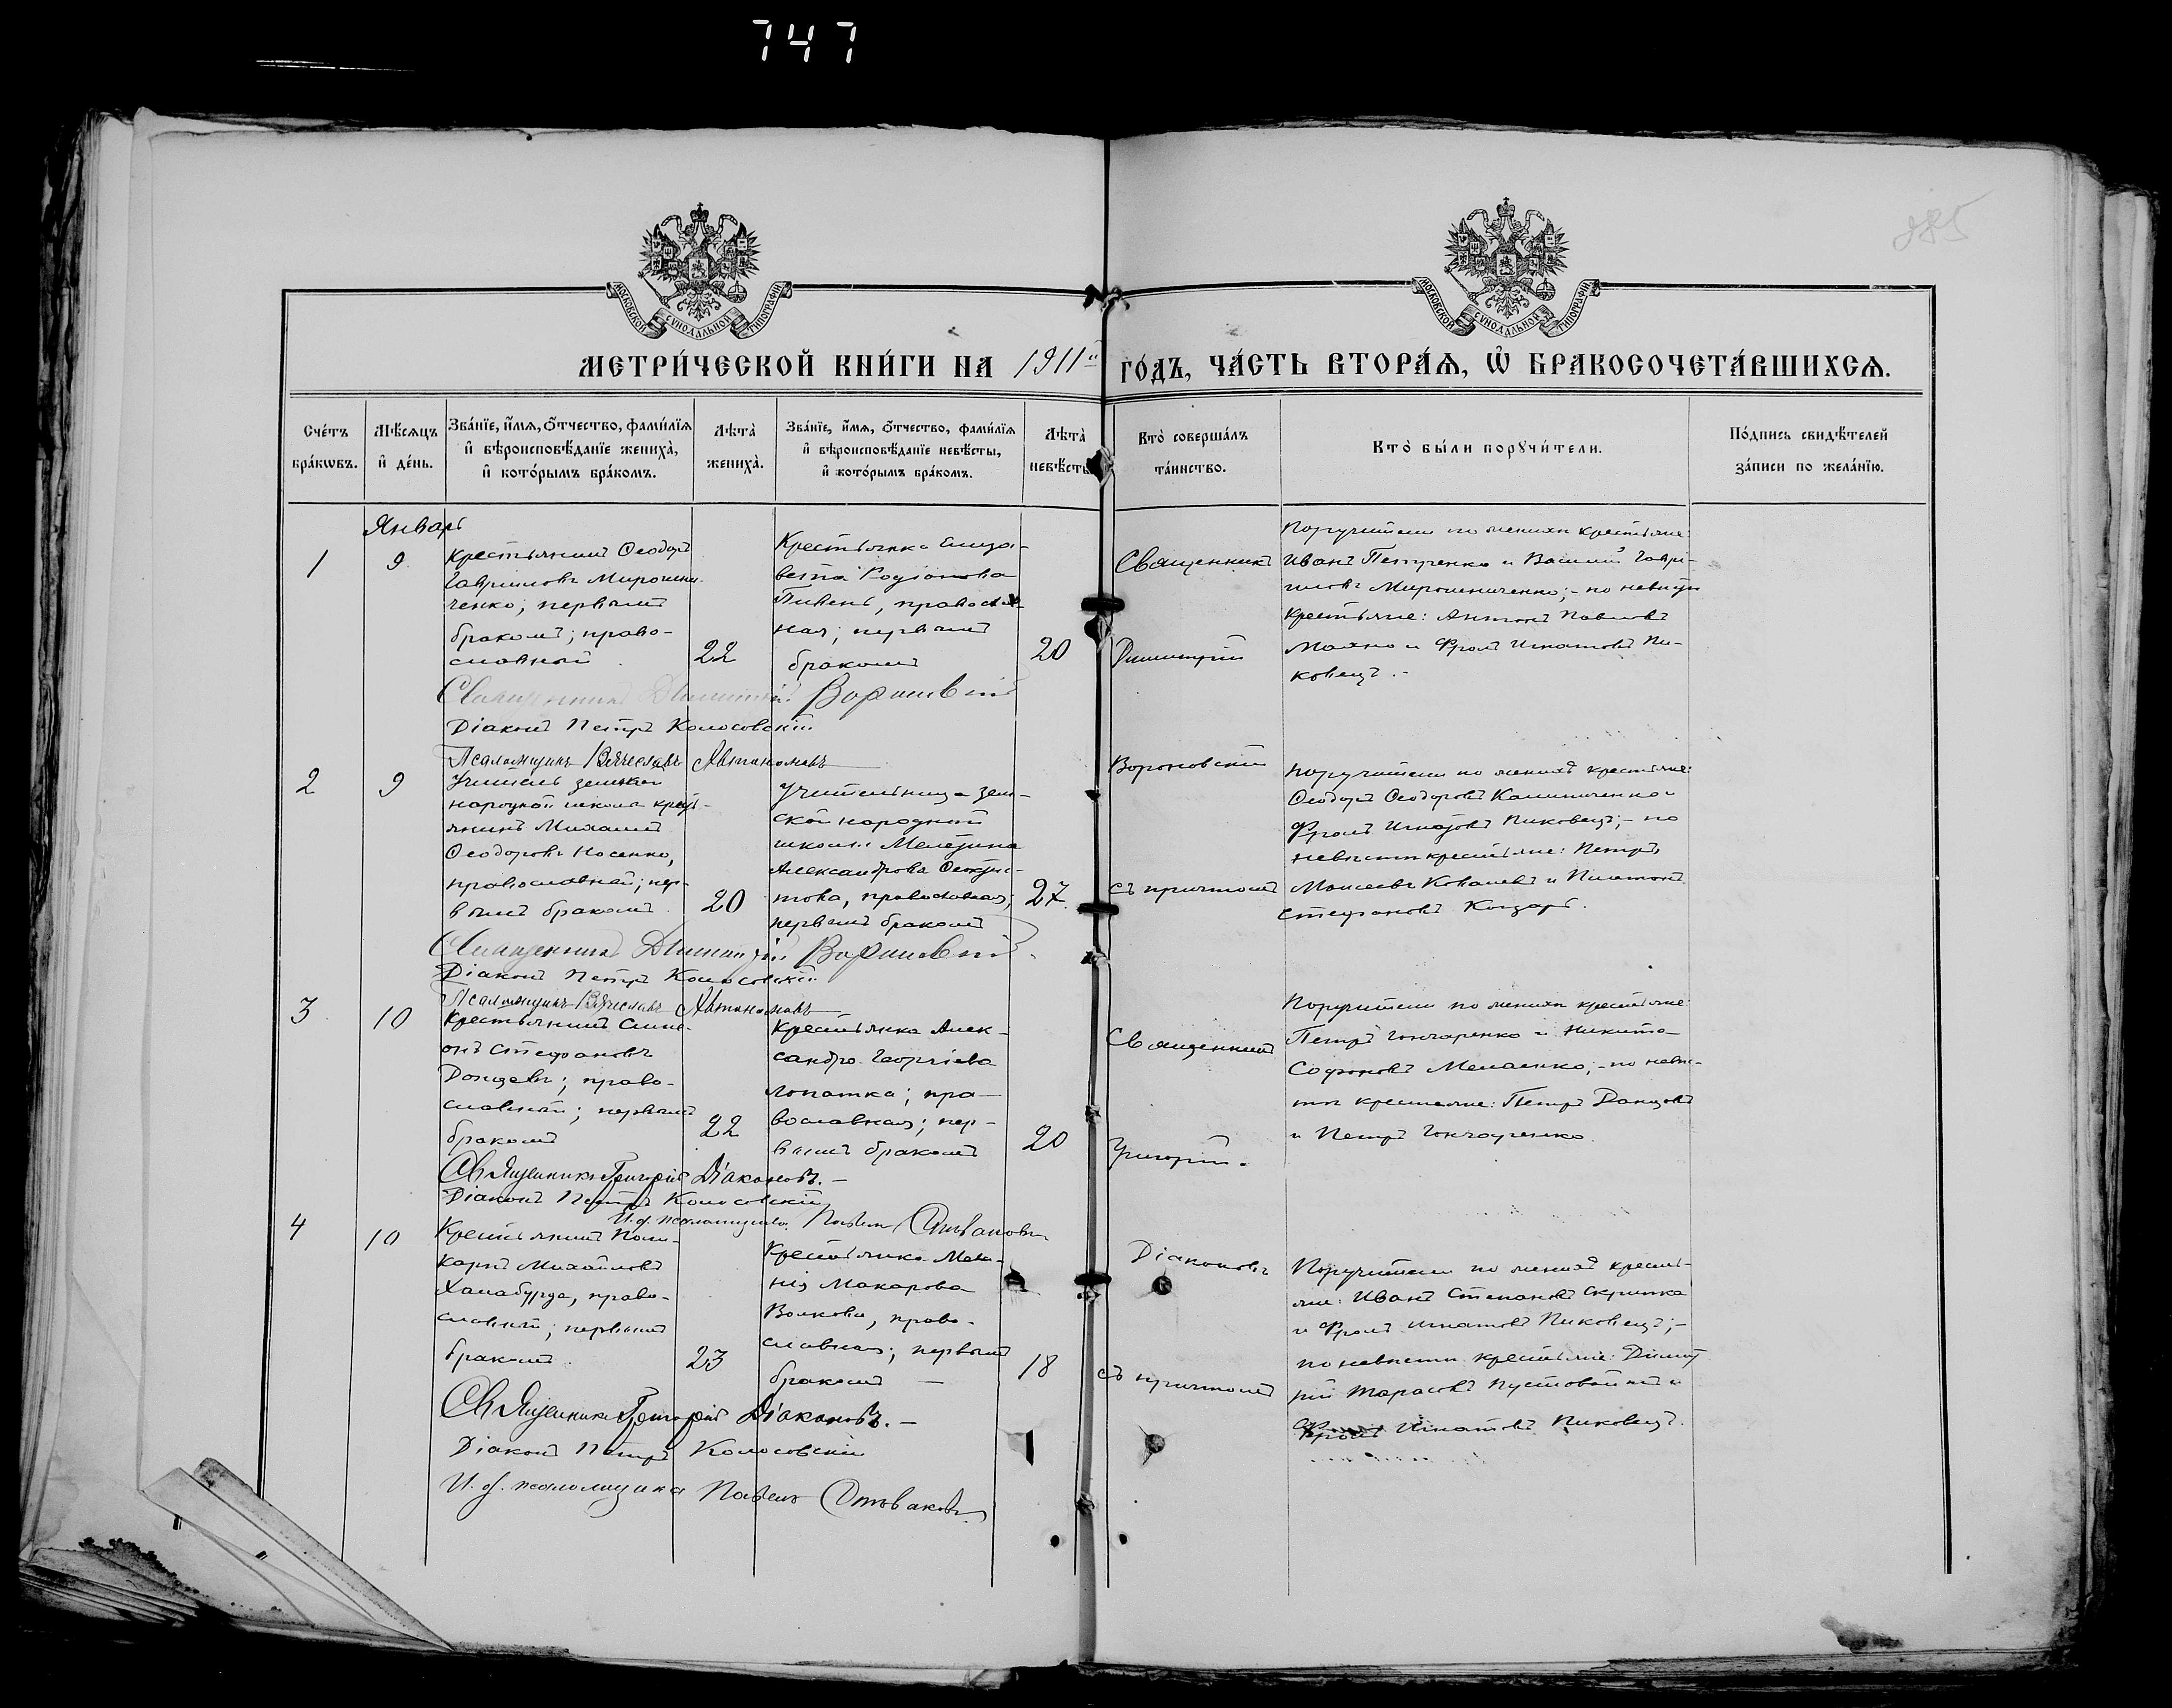 747
885
МОСКОВСКОЙ СѴНОДАЛЬНОЙ ТИПОГРАФІИ
МОСКОВСКОЙ СѴНОДАЛЬНОЙ ТИПОГРАФІИ
МЕТРИ́ЧЕСКОЙ КНИ́ГИ НА 1911й ГО́ДЪ, ЧА́СТЬ ВТОРА́Ѧ, Ѽ БРАКОСОЧЕТА́ВШИХСѦ.
Сче́тъ
бра́кѡвъ.
Мѣ́сѧцъ
и҆ де́нь.
Зва́нїе, и҆́мѧ, ѻ҆́тчество, фами́лїѧ
и҆ вѣроисповѣ́данїе жениха̀,
и҆ кото́рымъ бра́комъ.
Лѣта̀
жениха̀.
Зва́нїе, и҆́мѧ, ѻ҆́тчество, фами́лїѧ
и҆ вѣроисповѣ́данїе невѣ́сты,
и҆ кото́рымъ бра́комъ.
Лѣта̀
невѣ́сты
Кто̀ соверша́лъ
та́инство.
Кто̀ бы́ли порꙋчи́тели.
По́дпись свидѣ́телей
за́писи по жела́нїю.
Январь
1
9
Крестьянинъ Ѳеодоръ
Гавриловъ Мирошни-
ченко; первымъ
бракомъ; право-
славный
22
Крестьянка Елиза-
вета Родіонова
Пивень, православ-
ная; первымъ
бракомъ
20
Священникъ
Димитрій
Вороновскій
съ причтомъ
Поручители по женихѣ крестьяне:
Иванъ Петренко и Василій Гаврі-
иловъ Мирошниченко; - по невѣстѣ
крестьяне: Антонъ Павловъ
Махно и Фролъ Игнатовъ Пи-
ковецъ. -
Священникъ Димитрій Вороновскій
Діаконъ Петръ Колосовскій
Псаломщикъ Вячеславъ Автономовъ
2
9
Учитель земской
народной школы крест-
янинъ Михаилъ
Ѳеодоровъ Носенко,
православный; пер-
вымъ бракомъ
20
Учительница зем-
ской народной
школы
Александрова
това, православная;
первымъ бракомъ
27.
Поручители по женихѣ крестьяне:
Ѳеодоръ Ѳеодоровъ Калиниченко и
Фролъ Игнатовъ Пиковецъ; - по
невѣстѣ крестьяне: Петръ
Моисеевъ Ковалевъ и Платонъ
Стефановъ
Священникъ Димитрій Вороновскій.
Діаконъ Петръ Колосовскій
Псаломщикъ Вячеславъ Автономовъ
3
10
Крестьянинъ Симе-
онъ Стефановъ
Донцовъ; право-
славный; первымъ
бракомъ
22
Крестьянка Алек-
сандра Георгіева
Лопатка; пра-
вославная; пер-
вымъ бракомъ
20
Священникъ
Григорій
Діаконовъ
съ причтомъ
Поручители по женихѣ крестьяне:
Петръ Гончаренко и Никита
Софроновъ Мелаенко; - по невѣс-
тѣ крестьяне: Петръ Донцовъ
и Петръ Гончаренко.
Священникъ Григорій Діаконовъ. -
Діаконъ Петръ Колосовскій
И. об. псаломщика Павелъ
4
10
Крестьянинъ Поли-
карпъ Михайловъ
Халабурда, право-
славный; первымъ
бракомъ.
23
Крестьянка Мела-
нія Макарова
Волкова, право-
славная; первымъ
бракомъ —
18
Поручители по женихѣ кресть-
яне: Иванъ Степановъ Скрипка
и Фролъ Игнатовъ Пиковецъ; -
по невѣстѣ крестьяне: Димит-
рій Тарасовъ Пустовойтъ и
Фролъ Игнатовъ Пиковецъ.
Священникъ Григорій Діаконовъ. -
Діаконъ Петръ Колосовскій
И. об. псаломщика Павелъ